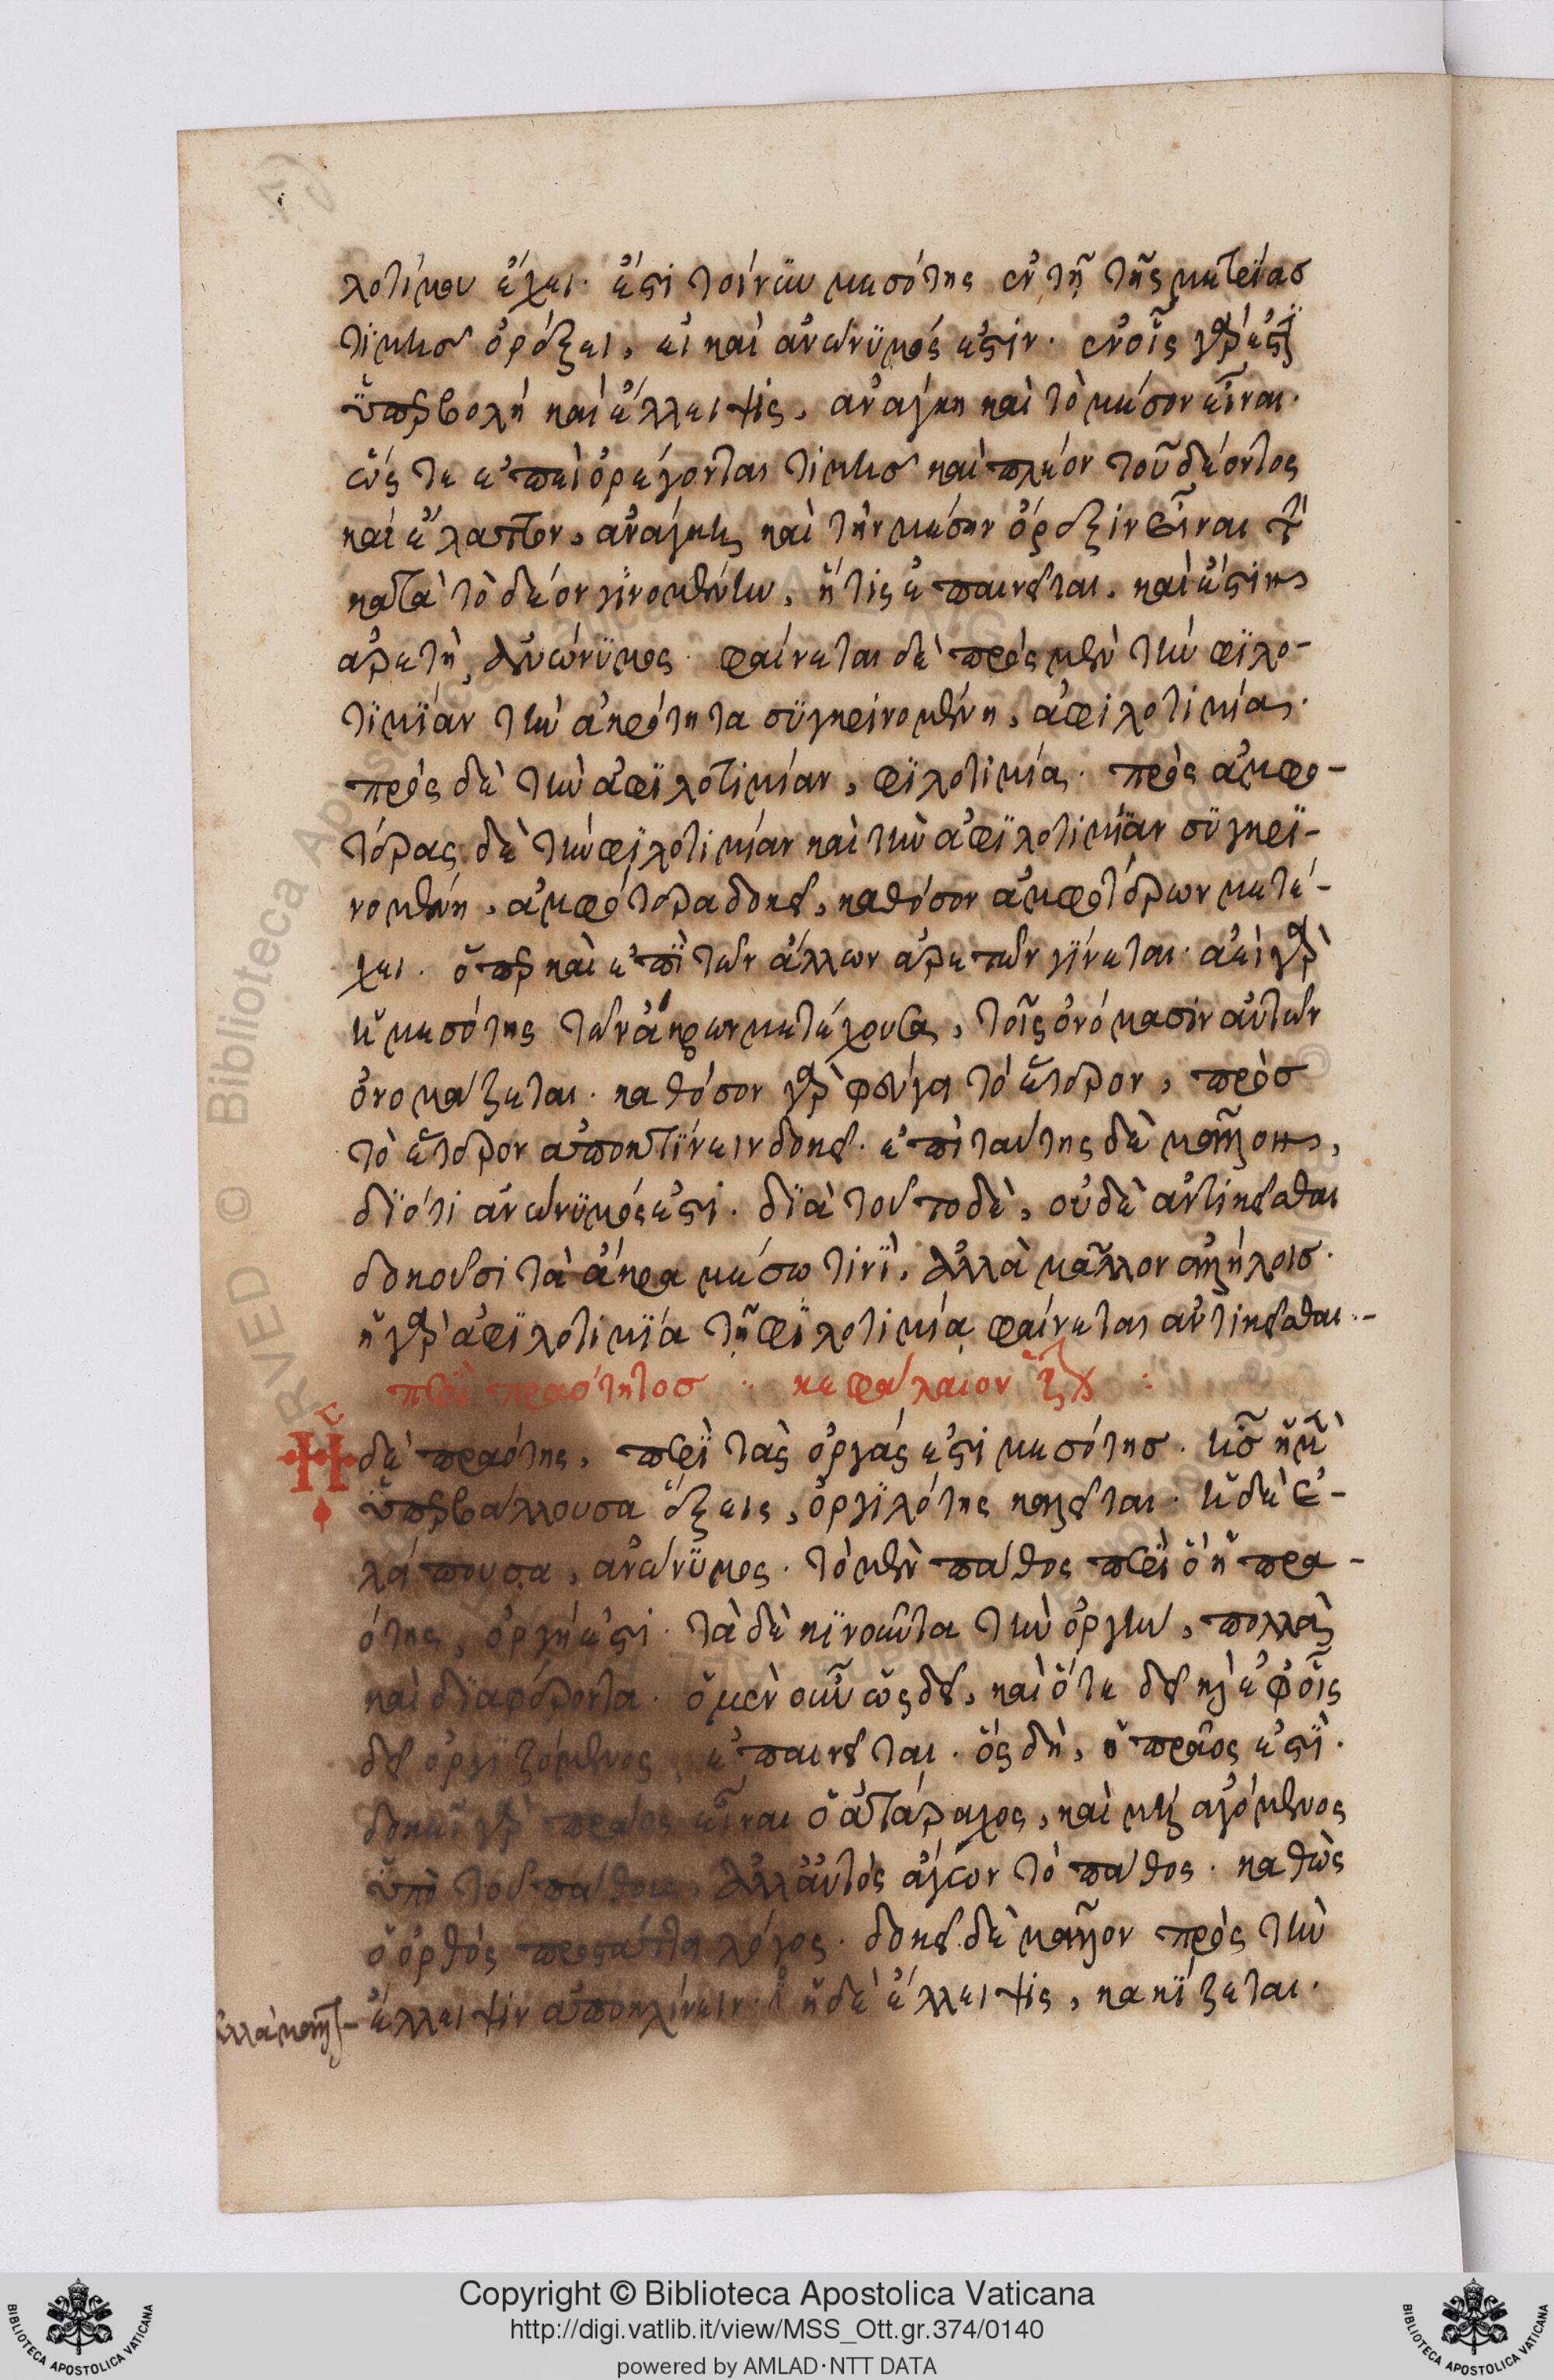 λοτίμου ἔχει. ἔστι τοίνυν μεσότης ἐν τῇ τῆς μετρίας
τιμῆς ὀρέξει, εἰ καὶ ἀνώνυμός ἐστιν. ἐν οἷς γάρ ἐστιν
ὑπερβολὴ καὶ ἔλλειψις, ἀνάγκη καὶ τὸ μέσον εἶναι.
ὥστε ἐπεὶ ὀρέγονται τιμῆς καὶ πλέον τοῦ δέοντος
καὶ ἔλαττον, ἀνάγκη καὶ τὴν μέσην ὄρεξιν εἶναι τὴν
κατὰ τὸ δέον γινομένην, ἥτις ἐπαινεῖται. καὶ ἔστιν
ἀρετὴ ἀνώνυμος. φαίνεται δὲ πρὸς μὲν τὴν φιλο-
τιμίαν τὴν ἀκρότητα συγκρινομένη, ἀφιλοτιμία.
πρὸς δὲ τὴν ἀφιλοτιμίαν, φιλοτιμία. πρὸς ἀμφο-
τέρας δὲ τὴν φιλοτιμίαν καὶ τὴν ἀφιλοτιμίαν συγκρι-
νομένη, ἀμφότερα δοκεῖ, καθόσον ἀμφοτέρων μετέ-
χει. ὅπερ καὶ ἐπὶ τῶν ἄλλων ἀρετῶν γίνεται. ἀεὶ γὰρ
ἡ μεσότης τῶν ἄκρων μετέχουσα, τοῖς ὀνόμασιν αὐτῶν
ὀνομάζεται. καθόσον γὰρ φεύγει τὸ ἕτερον, πρὸς
τὸ ἕτερον ἀποκλίνειν δοκεῖ. ἐπὶ ταύτης δὲ μᾶλλον,
διότι ἀνώνυμός ἐστι. διὰ τοῦτο δὲ, οὐδὲ ἀντικεῖσθαι
δοκοῦσι τὰ ἄκρα μέσω τινὶ, ἀλλὰ μᾶλλον ἀλλήλοις.
ἡ γὰρ ἀφιλοτιμία τῇ φιλοτιμίᾳ φαίνεται ἀντικεῖσθαι.-
περὶ πραότητος : κεφάλαιον :
Ἡ δὲ πραότης, περὶ τὰς ὀργάς ἐστι μεσότης. ἧς ἡ μὲν
ὑπερβάλλουσα ἕξεις, ὀργιλότης καλεῖται. ἡ δὲ ἐλ-
λείπουσα, ἀνώνυμος. τὸ μὲν πάθος περὶ ὃ ἡ πρα-
ότης, ὀργή ἐστι. τὰ δὲ κινοῦντα τὴν ὀργὴν, πολλὰ
καὶ διαφέροντα. ὁ μὲν οὖν ὡς δεῖ, καὶ ὅτε δεῖ καὶ ἐφ' οἷς
δεῖ ὀργιζόμενος, ἐπαινεῖται. ὃς δὴ, ὁ πρᾶος ἐστὶ.
δοκεῖ γὰρ πρᾶος εἶναι ὁ ἀτάραχος, καὶ μὴ ἀγόμενος
ὑπὸ τοῦ πάθους, ἀλλ' αὐτὸς ἄγων τὸ πάθος. καθὼς
ὁ ὀρθὸς προστάττει λόγος. δοκεῖ δὲ μᾶλλον πρὸς τὴν
ἔλλειψιν ἀποκλίνειν. ἡ δὲ ἔλλειψις, κακίζεται.
Copyright © Biblioteca Apostolica Vaticana
http://digi.vatlib.it/view/MSS_Ott.gr.374/0140
powered by AMLAD·NTT DATA
BIBLIOTECA APOSTOLICA VATICANA
BIBLIOTECA APOSTOLICA VATICANA